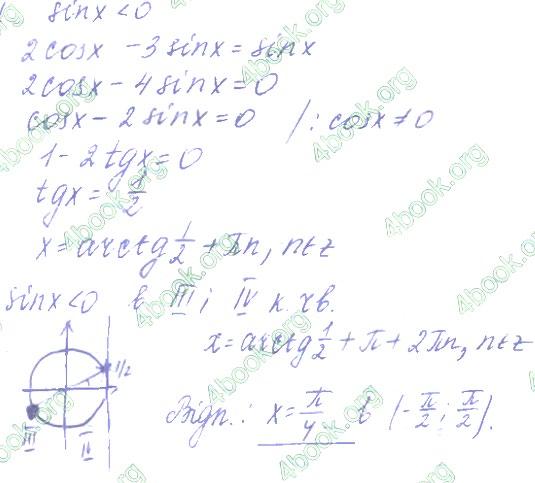 sinx < 0
2cosx - 3sinx = sinx
2cosx - 4sinx = 0
cosx - 2sinx = 0 /: cosx ≠ 0
1 - 2tgx = 0
tgx = 1/2
x = arctg 1/2 + πn, n∈z
sinx < 0 в III i IV к. чв.
x = arctg 1/2 + π + 2πn, n∈z
1/2
III
IV
Відп.: x = π/4 в (-π/2; π/2).
4book.org
4book.org
4book.org
4book.org
4book.org
4book.org
4book.org
4book.org
4book.org
4book.org
4book.org
4book.org